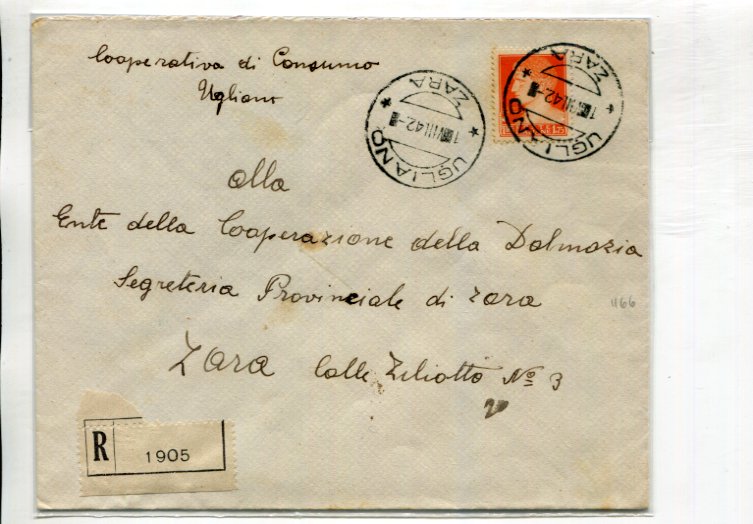 Cooperativa di Consumo
Ugliano
UGLIANO
ZARA
VIII 42
UGLIANO
ZARA
VIII 42
1.75
alla
Ente della Cooperazione della Dalmazia
Segreteria Provinciale di Zara
1166
Zara Calle Ziliotto No 3
R
1905